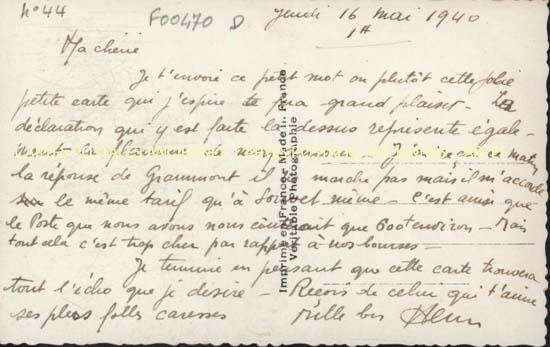 N° 44
F00470 D
Jeudi 16 mai 1940
1H
Ma chérie
Je t'envoie ce petit mot ou plutôt cette jolie
petite carte qui j'espère te fera grand plaisir - La
déclaration qui y est faite là dessus représente égale-
ment la de mon amour - J'ai reçu ce matin
la réponse de Grammont il ne marche pas mais il m'accorde
le même tarif qu'à même - C'est ainsi que
le Poste que nous avons nous que 600f environ - Mais
tout cela c'est trop cher par rapport à nos bourses -
Je termine en pensant que cette carte trouvera
tout l'écho que je désire - Reçois de celui qui t'aime
ses plus folles caresses
Mille bis
Imprimé en France - Made in France
Véritable Photographie